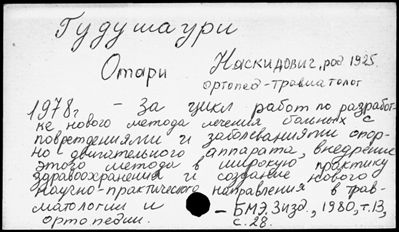 Гудушаури
Отари Наскидович, род 1925
ортопед-травматолог
1978г - За цикл работ по разработ-
ке нового метода лечения больных с
повреждениями и заболеваниями опор-
но двигательного аппарата, внедрение
этого метода в широкую практику
здравоохранения и создание нового
научно-практического направления в трав-
матологии и
ортопедии. - БМЭ, 3изд., 1980, т.13,
с. 28.